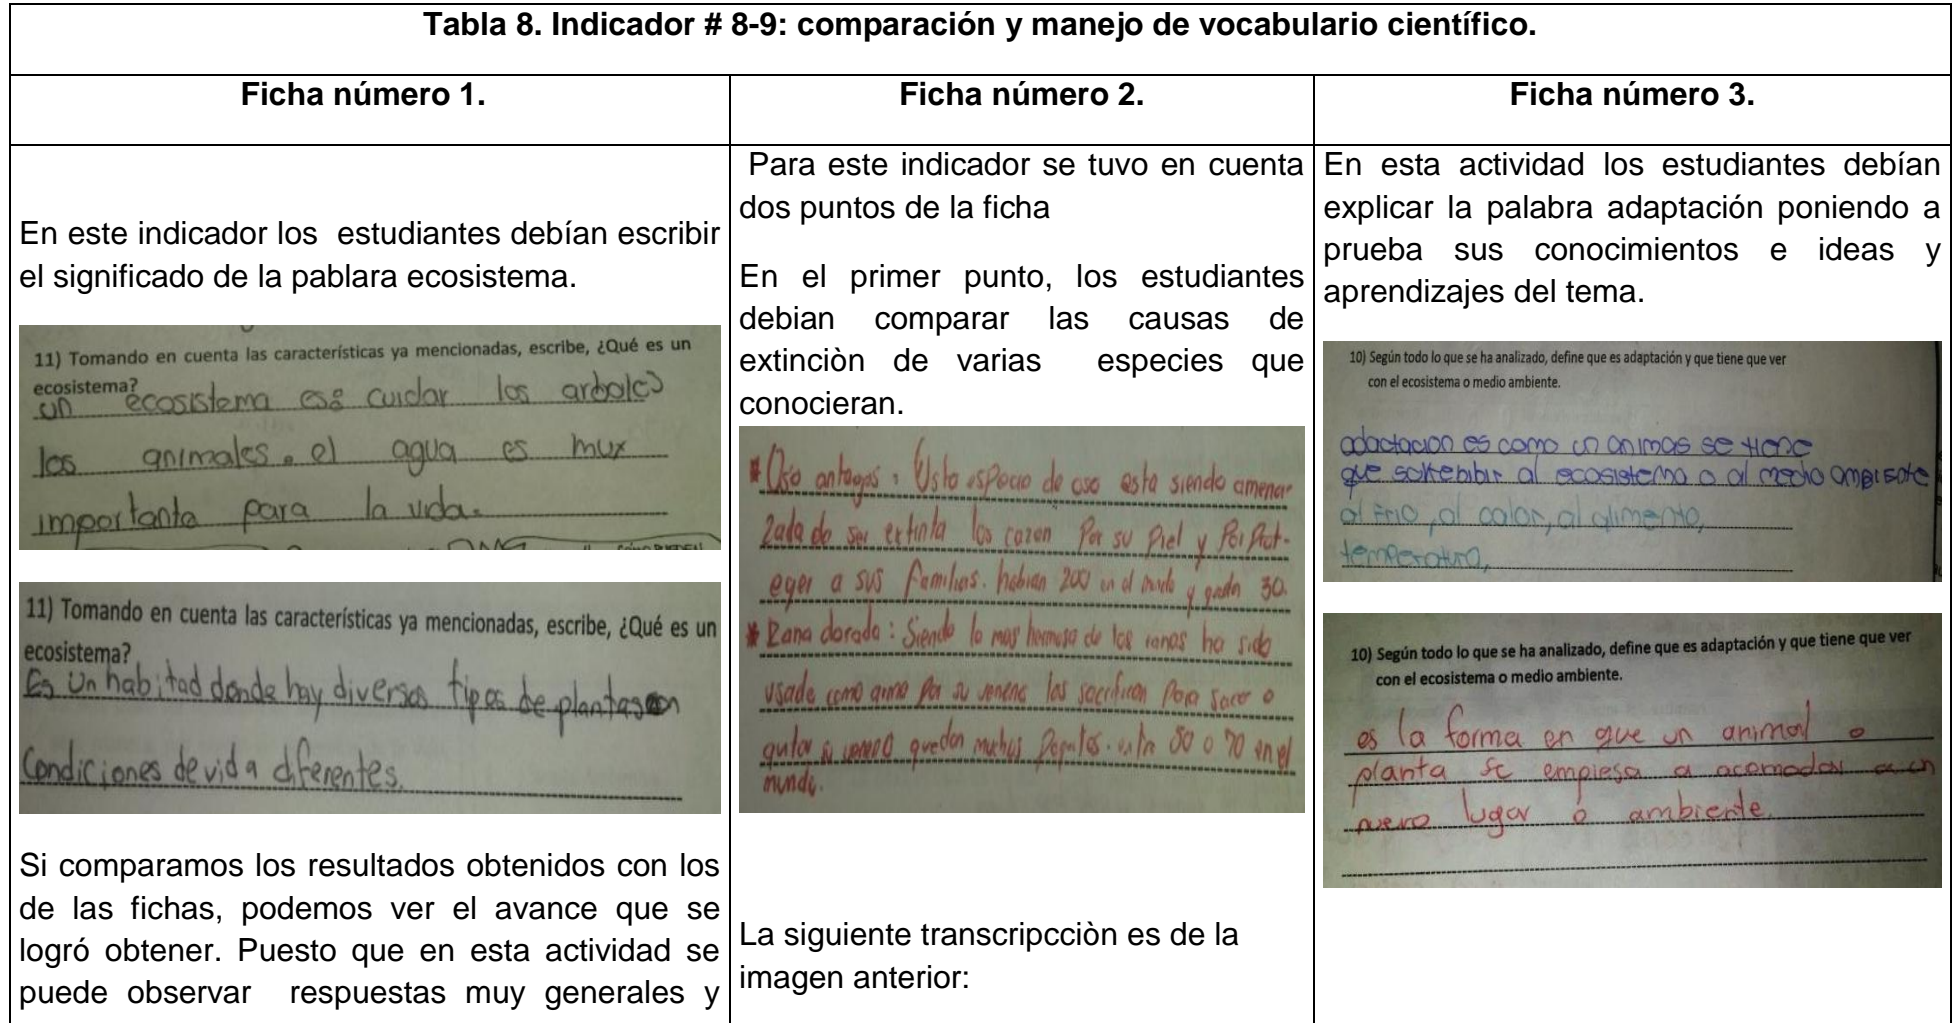 Tabla 8. Indicador # 8-9: comparación y manejo de vocabulario científico.
Ficha número 1.
Ficha número 2.
Ficha número 3.
En este indicador los estudiantes debían escribir
el significado de la pablara ecosistema.
11) Tomando en cuenta las características ya mencionadas, escribe, ¿Qué es un
ecosistema?
un ecosistema es: cuidar los arboles
los animales. el agua es mux
importanta para la vida.
11) Tomando en cuenta las características ya mencionadas, escribe, ¿Qué es un
ecosistema?
Es Un habitad donde hay diversos tipos de plantas con
Condiciones de vida diferentes.
Si comparamos los resultados obtenidos con los
de las fichas, podemos ver el avance que se
logró obtener. Puesto que en esta actividad se
puede observar respuestas muy generales y
Para este indicador se tuvo en cuenta
dos puntos de la ficha
En el primer punto, los estudiantes
debian comparar las causas de
extinciòn de varias especies que
conocieran.
* Oso anteojos : Esta especie de oso esta siendo amenar
zada de ser extinta los cazan Por su Piel y Por Prot-
eger a sus familias. habian 200 en el mundo y quedan 30.
* Rana dorada : Siendo la mas hermosa de las ranas ha sido
usada como arma por su veneno las sacrifican Para sacar o
quitar su veneno quedan muchos Poquitos. entre 50 o 70 en el
mundo.
La siguiente transcripcciòn es de la
imagen anterior:
En esta actividad los estudiantes debían
explicar la palabra adaptación poniendo a
prueba sus conocimientos e ideas y
aprendizajes del tema.
10) Según todo lo que se ha analizado, define que es adaptación y que tiene que ver
con el ecosistema o medio ambiente.
adactacion es como un animas se tiene
que al ecosistema o al medio ambiente
al frio, al calor, al alimento,
temperatura,
10) Según todo lo que se ha analizado, define que es adaptación y que tiene que ver
con el ecosistema o medio ambiente.
es la forma en que un animal o
planta se empiesa a acomodar a un
nuevo lugar o ambiente.